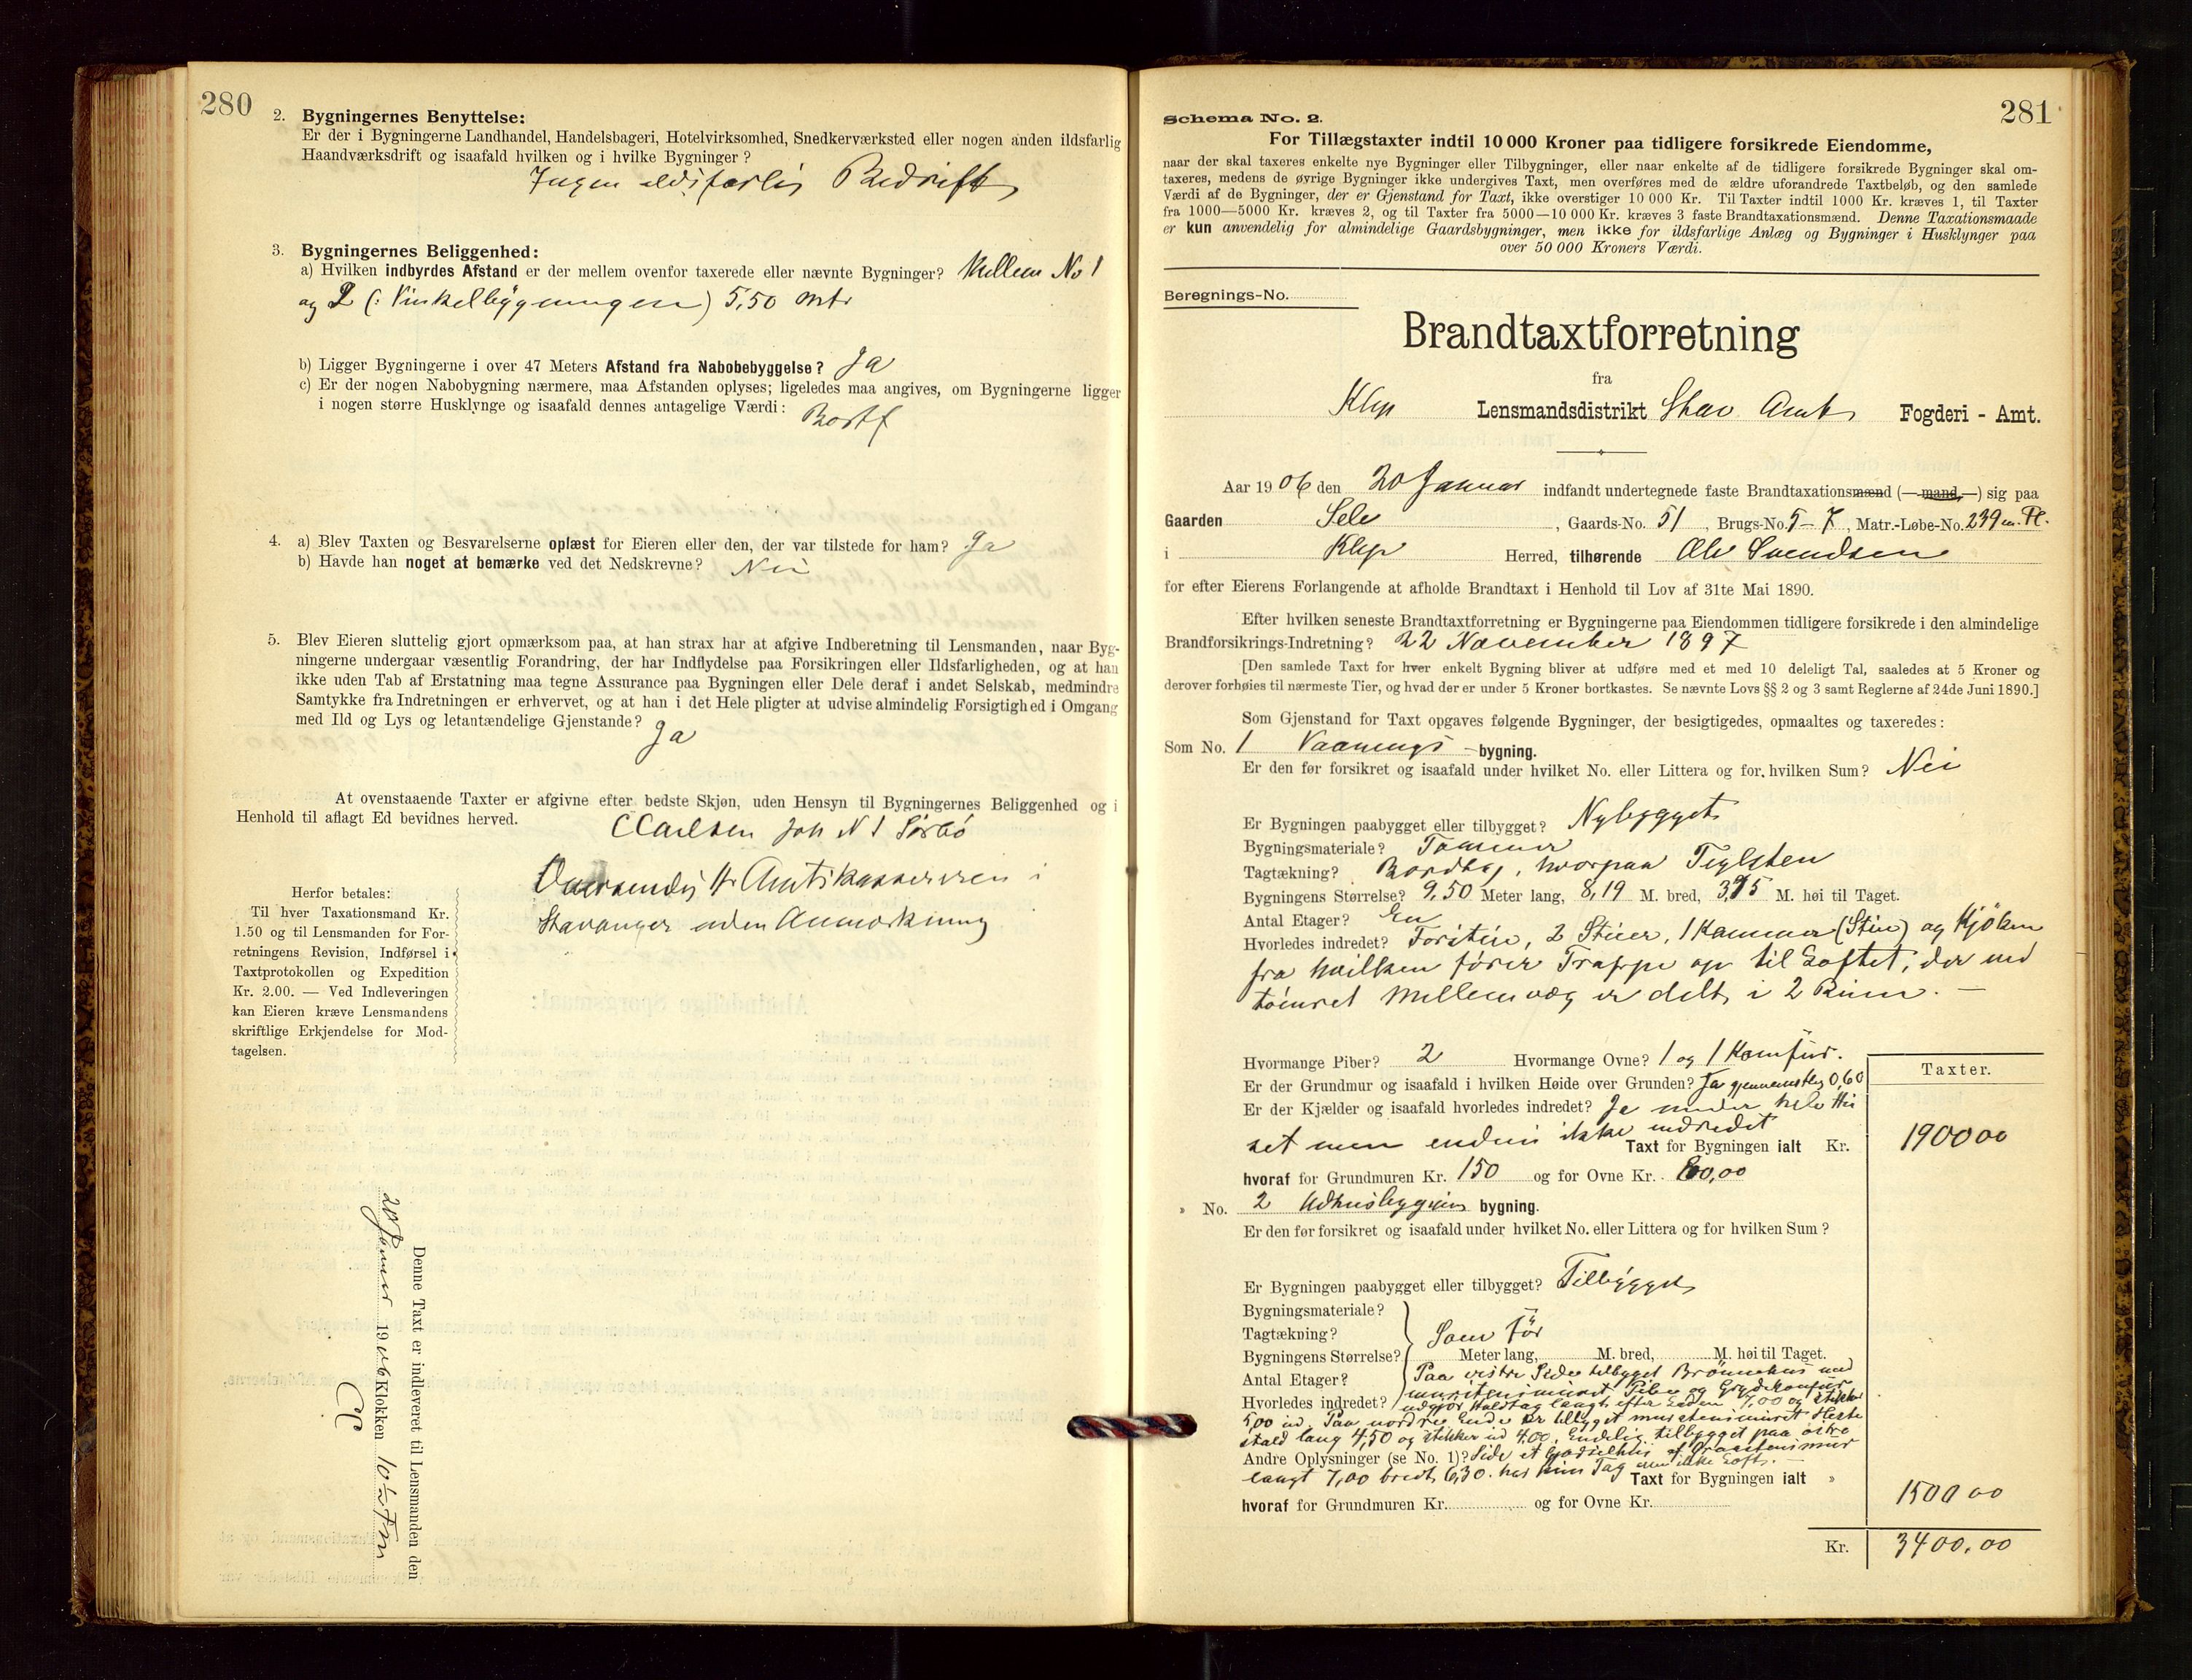 280
2. Bygningernes Benyttelse:
Er der i Bygningerne Landhandel, Handelsbageri, Hotelvirksomhed, Snedkerværksted eller nogen anden ildsfarlig
Haandværksdrift og isaafald hvilken og i hvilke Bygninger?
Ingen ildsfarlig Bedrift
3. Bygningernes Beliggenhed:
a) Hvilken indbyrdes Afstand er der mellem ovenfor taxerede eller nævnte Bygninger? Mellem No 1
og 2 (: Vinkelbygningen) 5,50 Mtr
b) Ligger Bygningerne i over 47 Meters Afstand fra Nabobebyggelse? Ja
c) Er der nogen Nabobygning nærmere, maa Afstanden oplyses; ligeledes maa angives, om Bygningerne ligger
i nogen større Husklynge og isaafald dennes antagelige Værdi: Bortf
4. a) Blev Taxten og Besvarelserne oplæst for Eieren eller den, der var tilstede for ham? Ja
b) Havde han noget at bemærke ved det Nedskrevne? Nei
5. Blev Eieren sluttelig gjort opmærksom paa, at han strax har at afgive Indberetning til Lensmanden, naar Byg-
ningerne undergaar væsentlig Forandring, der har Indflydelse paa Forsikringen eller Ildsfarligheden, og at han
ikke uden Tab af Erstatning maa tegne Assurance paa Bygningen eller Dele deraf i andet Selskab, medmindre
Samtykke fra Indretningen er erhvervet, og at han i det Hele pligter at udvise almindelig Forsigtighed i Omgang
med Ild og Lys og letantændelige Gjenstande? Ja
At ovenstaaende Taxter er afgivne efter bedste Skjøn, uden Hensyn til Bygningernes Beliggenhed og i
Henhold til aflagt Ed bevidnes herved. CCarlsen Joh N S Sørbö
Oversendes Hr Amtskassereren i
Stavanger uden Anmærkning
Herfor betales:
Til hver Taxationsmand Kr.
1.50 og til Lensmanden for For-
retningens Revision, Indførsel i
Taxtprotokollen og Expedition
Kr. 2.00. — Ved Indleveringen
kan Eieren kræve Lensmandens
skriftlige Erkjendelse for Mod-
tagelsen.
Denne Taxt er indleveret til Lensmanden den
20 Januar 1906 Klokken 10½ Fm
CC
281
Schema No. 2.
For Tillægstaxter indtil 10 000 Kroner paa tidligere forsikrede Eiendomme,
naar der skal taxeres enkelte nye Bygninger eller Tilbygninger, eller naar enkelte af de tidligere forsikrede Bygninger skal om-
taxeres, medens de øvrige Bygninger ikke undergives Taxt, men overføres med de ældre uforandrede Taxtbeløb, og den samlede
Værdi af de Bygninger, der er Gjenstand for Taxt, ikke overstiger 10 000 Kr. Til Taxter indtil 1000 Kr. kræves 1, til Taxter
fra 1000—5000 Kr. kræves 2, og til Taxter fra 5000—10 000 Kr. kræves 3 faste Brandtaxationsmænd. Denne Taxationsmaade
er kun anvendelig for almindelige Gaardsbygninger, men ikke for ildsfarlige Anlæg og Bygninger i Husklynger paa
over 50 000 Kroners Værdi.
Beregnings-No.
Brandtaxtforretning
fra
Klep Lensmandsdistrikt Stav Amts Fogderi - Amt.
Aar 1906 den 20 Januar indfandt undertegnede faste Brandtaxationsmænd (—mand—) sig paa
Gaarden Sele, Gaards-No. 51, Brugs-No. 5-7, Matr.-Løbe-No. 239 m. Fl.
i Klep Herred, tilhørende Ole Svendsen
for efter Eierens Forlangende at afholde Brandtaxt i Henhold til Lov af 31te Mai 1890.
Efter hvilken seneste Brandtaxtforretning er Bygningerne paa Eiendommen tidligere forsikrede i den almindelige
Brandforsikrings-Indretning? 22 November 1897
[Den samlede Taxt for hver enkelt Bygning bliver at udføre med et med 10 deleligt Tal, saaledes at 5 Kroner og
derover forhøies til nærmeste Tier, og hvad der er under 5 Kroner bortkastes. Se nævnte Lovs §§ 2 og 3 samt Reglerne af 24de Juni 1890.]
Som Gjenstand for Taxt opgaves følgende Bygninger, der besigtigedes, opmaaltes og taxeredes:
Som No. 1 Vaanings-bygning.
Er den før forsikret og isaafald under hvilket No. eller Littera og for hvilken Sum? Nei
Er Bygningen paabygget eller tilbygget? Nybygget
Bygningsmateriale? Tømmer
Tagtækning? Bordtag, hvorpaa Teglsten
Bygningens Størrelse? 9,50 Meter lang, 8,19 M. bred, 3,75 M. høi til Taget.
Antal Etager? En
Hvorledes indredet? Forstue, 2 Stuer, 1 Kammer (Stue) og Kjöken
fra hvilken fører Trappe op til Loftet, der ved
tömret Mellemvæg er delt i 2 Rum. —
Hvormange Piber? 2 Hvormange Ovne? 1 og 1 Komfur.
Er der Grundmur og isaafald i hvilken Høide over Grunden? Ja gjennemsitlig 0,60
Er der Kjælder og isaafald hvorledes indredet? Ja under hele Hu
set men endnu ikke indredet
Taxter.
Taxt for Bygningen ialt Kr. 1900 00
hvoraf for Grundmuren Kr. 150 og for Ovne Kr. 60,00
» No. 2 Udhusbygnings bygning.
Er den før forsikret og isaafald under hvilket No. eller Littera og for hvilken Sum?
Er Bygningen paabygget eller tilbygget? Tilbygget
Bygningsmateriale?
Tagtækning? Som för
Bygningens Størrelse? Meter lang, M. bred, M. høi til Taget.
Antal Etager? Paa vestre Side tilbygget Brönnehus med
Hvorledes indredet? murstensmuret Pibe og Grydekomfur
udgjör Halvtag langt efter Laden 7,00 og stikker
5,00 ud. Paa nordre Ende er tilbygget murstensmuret Heste
stald lang 4,50 og stikker ud 4,00. Endelig tilbygget paa östre
Andre Oplysninger (se No. 1)? Side et Gjødselhus af Graastensmur
langt 7,00 bredt 6,30. har Tag men ikke Loft. —
Taxt for Bygningen ialt » 1500 00
hvoraf for Grundmuren Kr. og for Ovne Kr.
Kr. 3400,00